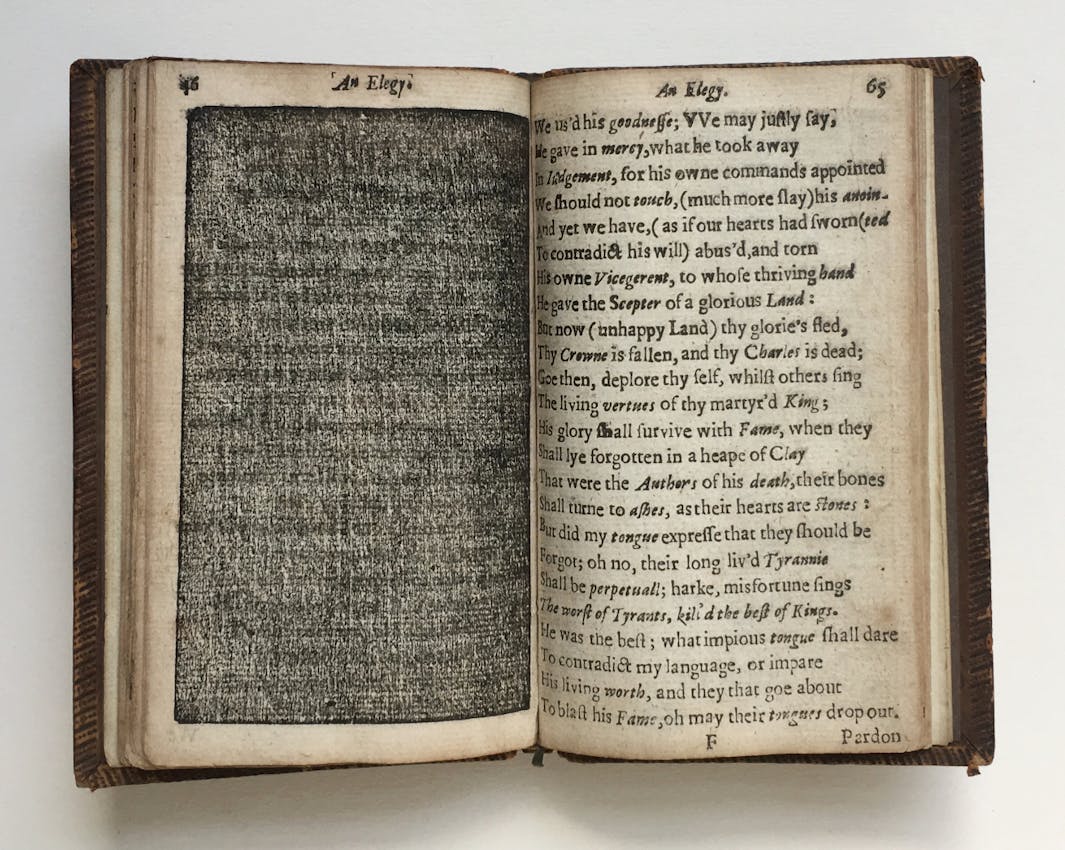 46
An Elegy.
An Elegy.
65
We us'd his goodneſſe; VVe may juſtly ſay,
He gave in mercy, what he took away
In Iudgement, for his owne commands appointed
We ſhould not touch, (much more ſlay) his anoin-
And yet we have, ( as if our hearts had ſworn (ted
To contradict his will) abus'd, and torn
His owne Vicegerent, to whoſe thriving hand
He gave the Scepter of a glorious Land:
But now (unhappy Land) thy glorie's fled,
Thy Crowne is fallen, and thy Charles is dead;
Goe then, deplore thy ſelf, whilſt others ſing
The living vertues of thy martyr'd King;
His glory ſhall ſurvive with Fame, when they
Shall lye forgotten in a heape of Clay
That were the Authors of his death, their bones
Shall turne to aſhes, as their hearts are ſtones:
But did my tongue expreſſe that they ſhould be
Forgot; oh no, their long liv'd Tyrannie
Shall be perpetuall; harke, misfortune ſings
The worſt of Tyrants, kill'd the beſt of Kings.
He was the beſt; what impious tongue ſhall dare
To contradict my language, or impare
His living worth, and they that goe about
To blaſt his Fame, oh may their tongues drop out.
F
Pardon